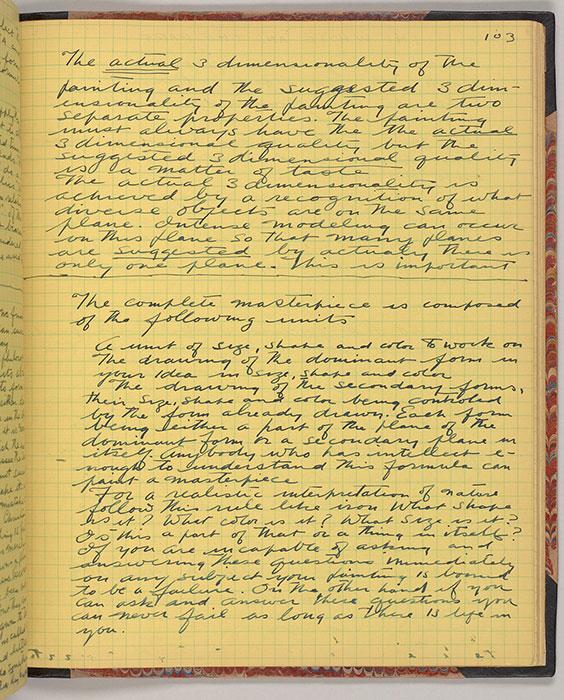 103
The actual 3 dimensionality of the
painting and the suggested 3 dim-
ensionality of the painting are two
separate properties. The painting
must always have the the actual
3 dimensional quality but the
suggested 3 dimensional quality
is a matter of taste
The actual 3 dimensionality is
achieved by a recognition of what
diverse objects are on the same
plane. Intense modeling can occur
on this plane so that many planes
are suggested by actualy there is
only one plane. This is important
The complete masterpiece is composed
of the following units
A unit of size, shape and color to work on
The drawing of the dominant form in
your idea in size, shape and color
The drawing of the secondary forms,
their size, shape and color being controled
by the form already drawn. Each form
being either a part of the plane of the
dominant form or a secondary plane in
itself. Any body who has intellect e-
nough to understand this formula can
paint a masterpiece
For a realistic interpretation of nature
follow this rule like iron What shape
is it? What color is it? What size is it?
Is this a part of that or a thing in itself?
If you are incapable of asking and
answering these questions immediately
on any subject your painting is bound
to be a failure. On the other hand if you
can ask and answer these questions you
can never fail as long as there is life in
you.